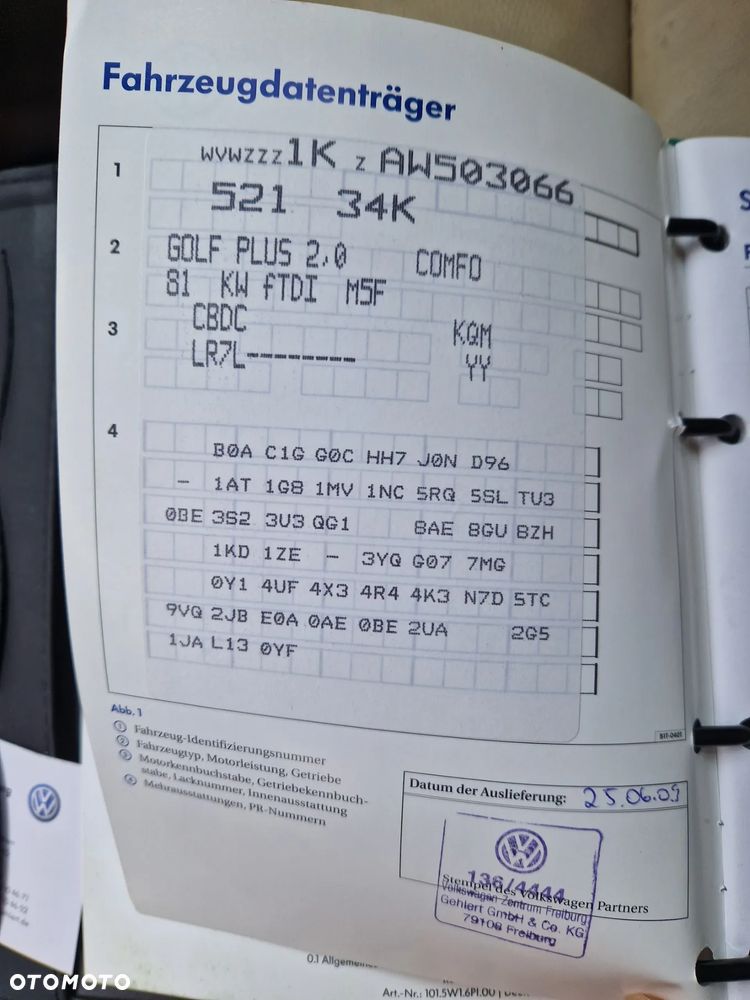 Fahrzeugdatenträger
1
WVWZZZ1K Z AW503066
521 34K
2
GOLF PLUS 2,0 COMFO
81 KW fTDI M5F
3
CBDC KQM
LR7L--------- YY
4
B0A C1G G0C HH7 J0N D96
- 1AT 1G8 1MV 1NC 5RQ 5SL TU3
0BE 3S2 3U3 QG1 8AE 8GU 8ZH
1KD 1ZE - 3YQ G07 7MG
0Y1 4UF 4X3 4R4 4K3 N7D 5TC
9VQ 2JB E0A 0AE 0BE 2UA 2G5
1JA L13 0YF
Abb. 1
B1T-0401
① Fahrzeug-Identifizierungsnummer
② Fahrzeugtyp, Motorleistung, Getriebe
③ Motorkennbuchstabe, Getriebekennbuch-
stabe, Lacknummer, Innenausstattung
④ Mehrausstattungen, PR-Nummern
Datum der Auslieferung: 25.06.09
136/4444
Stempel des Volkswagen Partners
Volkswagen Zentrum Freiburg
Gehlert GmbH & Co. KG
79108 Freiburg
0.1 Allgemei
Art.-Nr.: 101.5W1.6PI.00
OTOMOTO